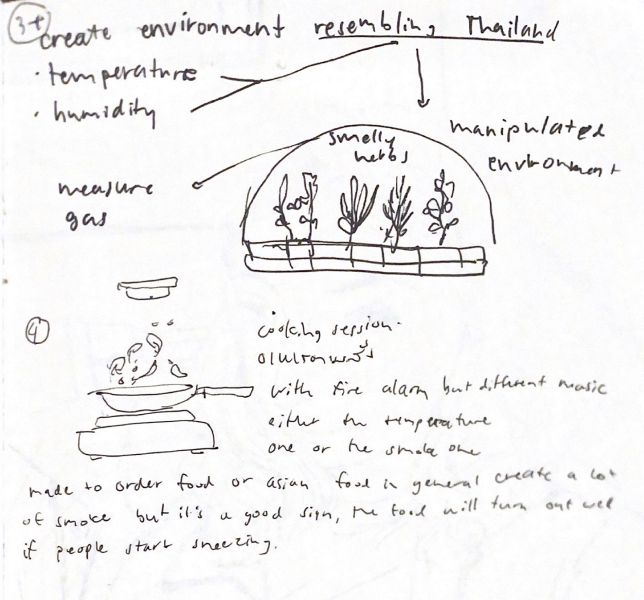 3+
create environment resembling Thailand
· temperature
· humidity
smelly
herbs
manipulated
environment
measure
gas
4
cooking session.
อาหารตามสั่ง
with fire alarm but different music
either the temperature
one or the smoke one
made to order food or asian food in general create a lot
of smoke but it's a good sign, the food will turn out well
if people start sneezing.